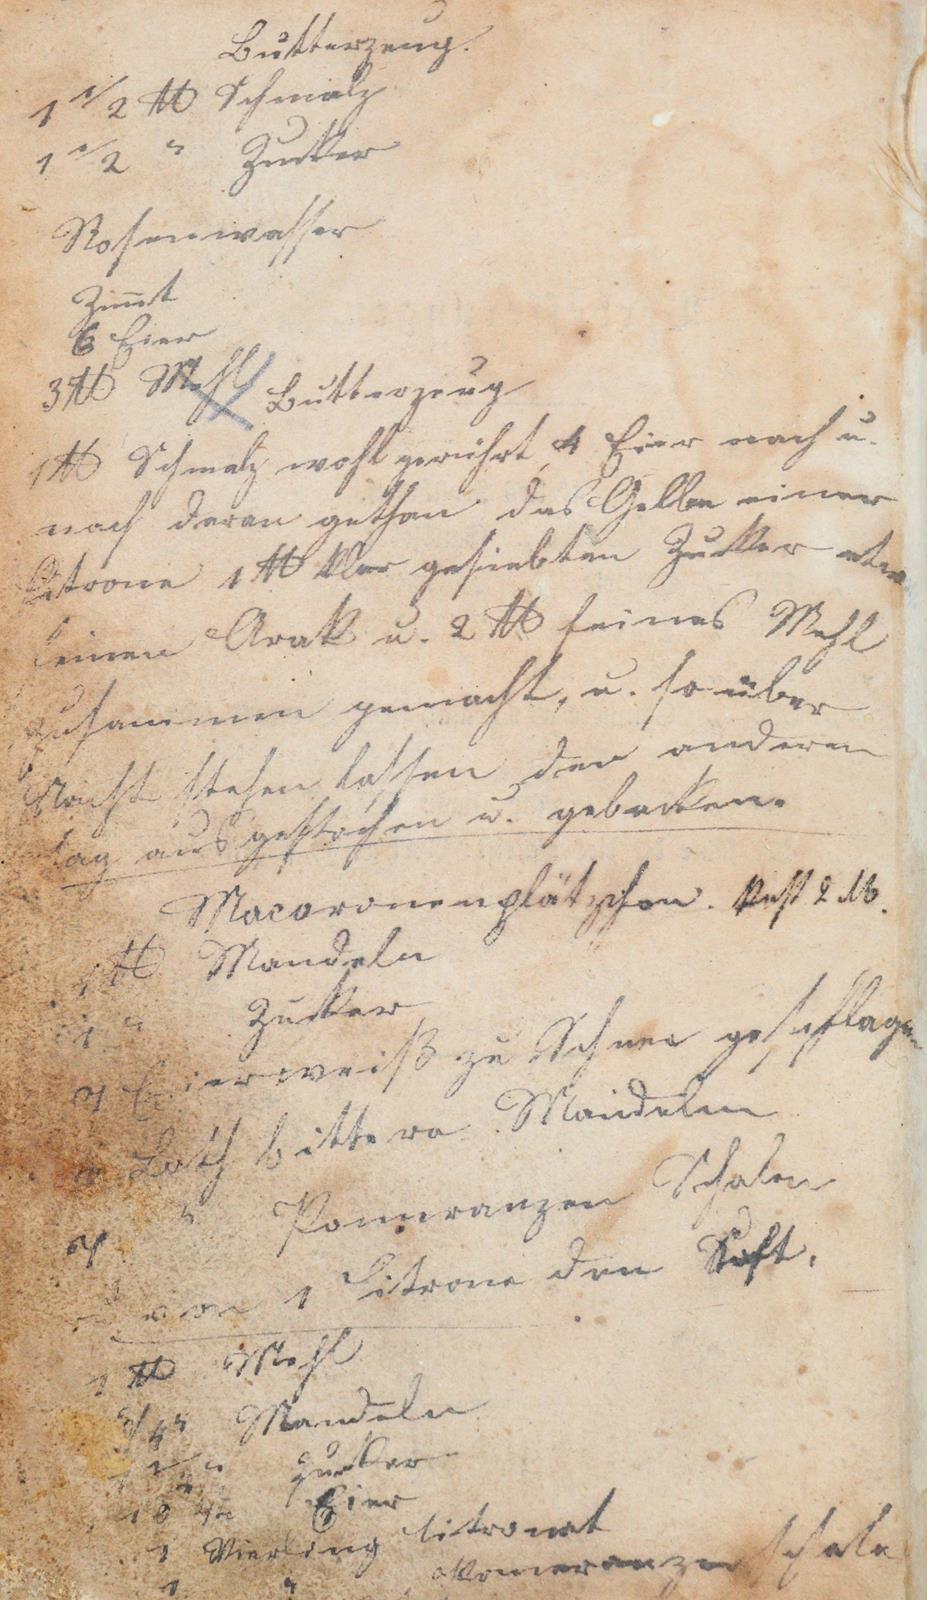 Butterzeug.
1 1/2 ℔ Schmalz
1 1/2 " Zucker
Rosenwasser
Zimmt
6 Eier
3 ℔ Mehl
Butterzeug
1 ℔ Schmalz wohl gerührt, 4 Eier nach u.
nach daran gethan das Gelbe einer
Citrone 1 ℔ klar gesiebten Zucker
einen Arak u. 2 ℔ feines Mehl
zusammen gemacht, u. so über
Nacht stehen lassen den anderen
tag ausgestochen u. gebacken.
Macaronenplätzchen.
1 ℔ Mandeln
1 " Zucker
Eierweiß zu Schnee geschlagen
Loth bittere Mandeln
" Pomeranzen Schalen
von 1 Citrone den Saft.
1 ℔ Mehl
3/4 " Mandeln
" Zucker
Eier
1 Vierling Citronat
1 " Pomeranzenschale